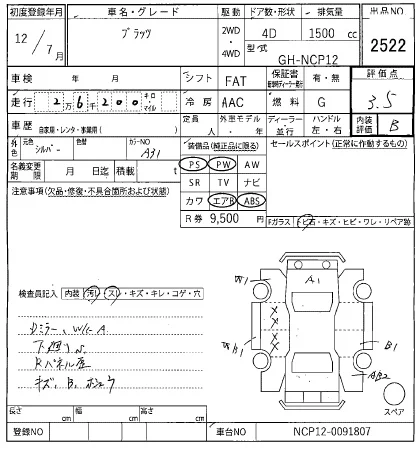 初度登録年月 車名・グレード 駆動 ドア数・形状 排気量 出品NO
12/7月 プラッツ 2WD・4WD 4D 1500 cc 2522
型式 GH-NCP12
車検 年 月 シフト FAT 保証書 有・無 評価点
走行 2万6千200 キロ・マイル 冷房 AAC 燃料 G 3.5
車歴 自家用・レンタ・事業用( ) 定員 人 外車モデル・年 ディーラー・並行 ハンドル 左・右 内装評価 B
外色 元色 シルバー 色替 カラーNO A31 装備品(純正品に限る) セールスポイント(正常に作動するもの)
名義変更期限 月 日迄 積載 t PS PW AW
注意事項(欠品・修復・不具合箇所および状態) SR TV ナビ
カワ エアB ABS
R券 9,500円 Fガラス トビ石・キズ・ヒビ・ワレ・リペア跡
A1
検査員記入 内装 汚れ スレ・キズ・キレ・コゲ・穴
Dミラー、W/C A
下廻りS
Rパネル歪
キズ、B、
B1
AB2
スペア
長さ cm 幅 cm 高さ cm
登録NO 車台NO NCP12-0091807